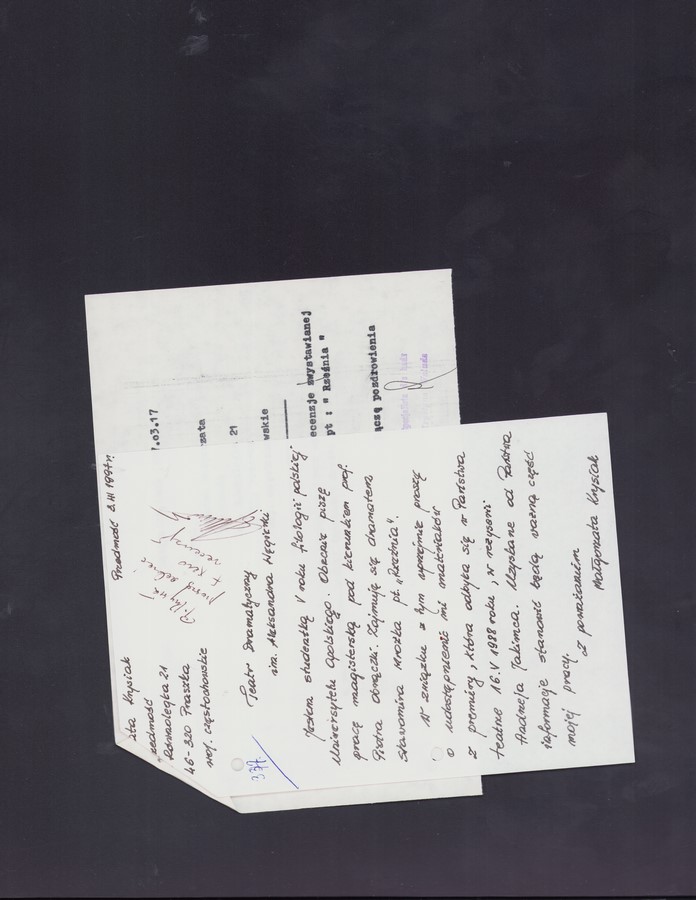 7.03.17
zata
21
wskie
ecenzje wystawianej
pt : " Rzeźnia "
ączę pozdrowienia
Przedmość 2.III 1997r.
ata Krysiak
zedmość
Równoległa 21
46-320 Praszka
woj. częstochowskie
Teatr Dramatyczny
im. Aleksandra Węgierki
337
Jestem studentką V roku filologii polskiej
Uniwersytetu Opolskiego. Obecnie piszę
pracę magisterską pod kierunkiem prof.
Piotra Obrączki. Zajmuję się dramatem
Sławomira Mrożka pt. „Rzeźnia".
W związku z tym uprzejmie proszę
o udostępnienie mi materiałów
z premiery, która odbyła się w Państwa
teatrze 16.V 1988 roku, w reżyserii
Andrzeja Jakimca. Uzyskane od Państwa
informacje stanowić będą ważną część
mojej pracy.
Z poważaniem
Małgorzata Krysiak